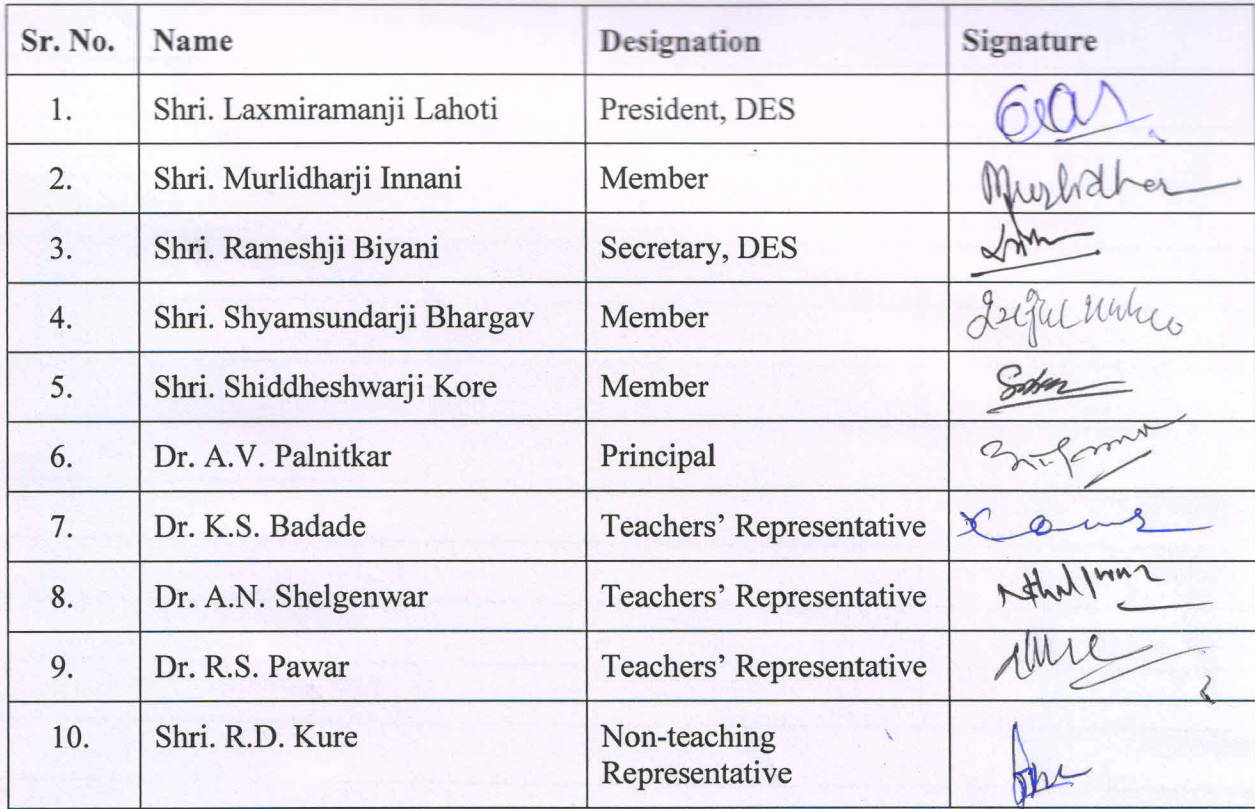 Sr. No. Name Designation Signature
1. Shri. Laxmiramanji Lahoti President, DES
2. Shri. Murlidharji Innani Member Murlidhar
3. Shri. Rameshji Biyani Secretary, DES
4. Shri. Shyamsundarji Bhargav Member
5. Shri. Shiddheshwarji Kore Member
6. Dr. A.V. Palnitkar Principal
7. Dr. K.S. Badade Teachers' Representative
8. Dr. A.N. Shelgenwar Teachers' Representative
9. Dr. R.S. Pawar Teachers' Representative
10. Shri. R.D. Kure Non-teaching
Representative